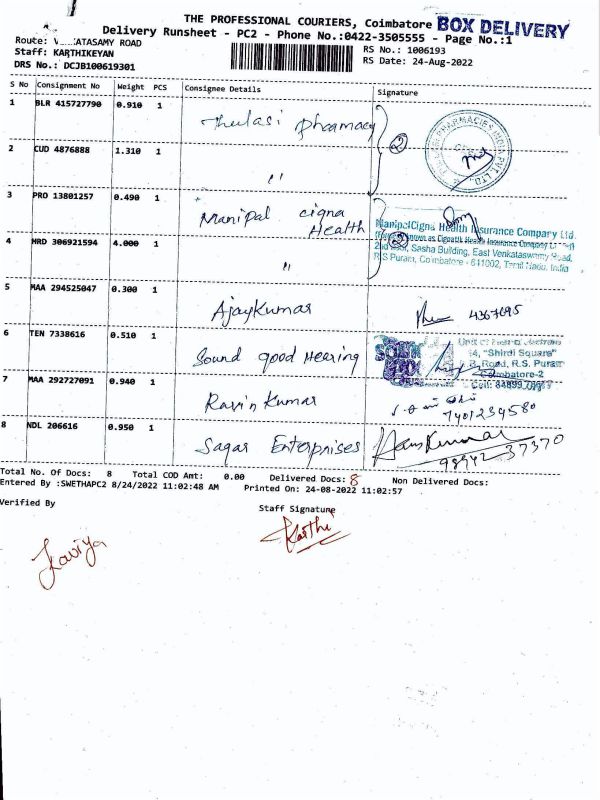 THE PROFESSIONAL COURIERS, Coimbatore BOX DELIVERY
Delivery Runsheet - PC2 - Phone No.:0422-3505555 - Page No.:1
Route: V ATASAMY ROAD
RS No.: 1006193
Staff: KARTHIKEYAN
RS Date: 24-Aug-2022
DRS No.: DCJB100619301
S No Consignment No Weight PCS Consignee Details Signature
1 BLR 415727790 0.910 1 Thulasi Pharmacy 2
2 CUD 4876888 1.310 1 "
3 PRO 13801257 0.490 1 Manipal cigna Health
ManipalCigna Health Insurance Company Ltd.
4 MRD 306921594 4.000 1 " 2
2nd Floor, Sasha Building, East Venkataswamy Road,
R.S Puram, Coimbatore - 641002, Tamil Nadu, India
5 MAA 294525047 0.300 1 AjayKumar
6 TEN 7338616 0.510 1 Sound good Hearing
"Shirdi Square"
Road, R.S. Puram
Coimbatore-2
7 MAA 292727091 0.940 1 Ravin Kumar 7401239580
8 NDL 206616 0.950 1 Sagar Enterprises
98942 37370
Total No. Of Docs: 8 Total COD Amt: 0.00 Delivered Docs: 8 Non Delivered Docs:
Entered By :SWETHAPC2 8/24/2022 11:02:48 AM Printed On: 24-08-2022 11:02:57
Verified By
Staff Signature
Kaviya
Karthi